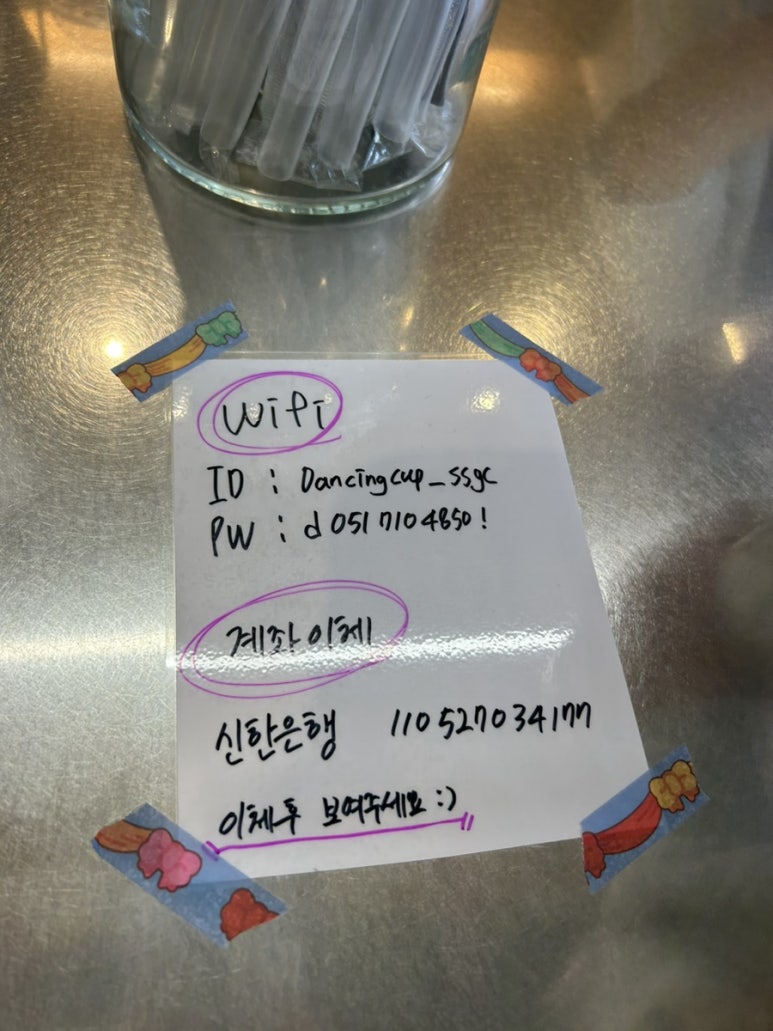 Wifi
ID : Dancingcup_ssgc
PW : d0517104850!
계좌이체
신한은행 110527034177
이체후 보여주세요 :)